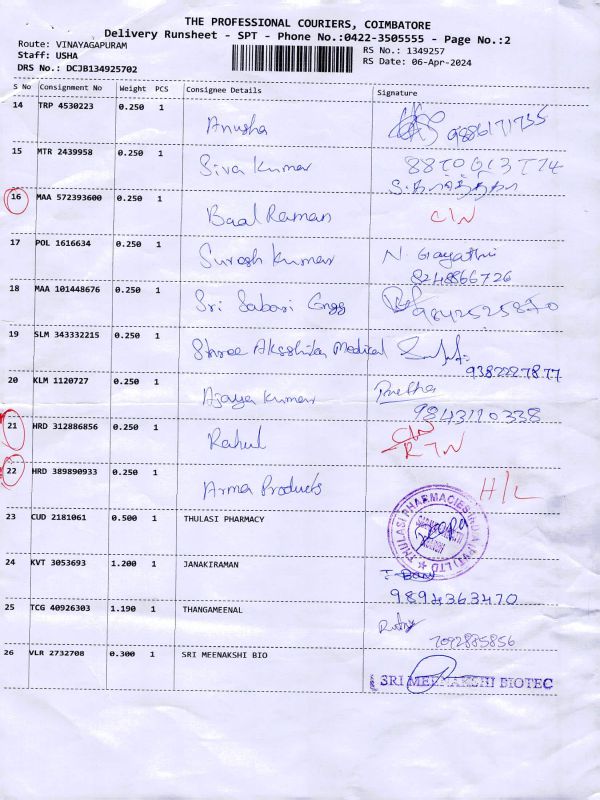 THE PROFESSIONAL COURIERS, COIMBATORE
Delivery Runsheet - SPT - Phone No.:0422-3505555 - Page No.:2
Route: VINAYAGAPURAM
RS No.: 1349257
Staff: USHA
RS Date: 06-Apr-2024
DRS No.: DCJB134925702
S No Consignment No Weight PCS Consignee Details Signature
14 TRP 4530223 0.250 1 Anusha 9886171755
15 MTR 2439958 0.250 1 Siva Kumar
16 MAA 572393600 0.250 1 Baal Raman C/N
17 POL 1616634 0.250 1 Suresh Kumar N. Gayathri
8248866726
18 MAA 101448676 0.250 1 Sri Sabari Engg 9842525870
19 SLM 343332215 0.250 1 Shree Aksshita Medical
9382227877
20 KLM 1120727 0.250 1 Ajaya Kumar Pretha
9843110338
21 HRD 312886856 0.250 1 Rahul C/N
RTN
22 HRD 389890933 0.250 1 Arma Products H/L
23 CUD 2181061 0.500 1 THULASI PHARMACY
THULASI PHARMACIES INDIA (PVT) LTD
24 KVT 3053693 1.200 1 JANAKIRAMAN
9894363470
25 TCG 40926303 1.190 1 THANGAMEENAL
7092885856
26 VLR 2732708 0.300 1 SRI MEENAKSHI BIO
SRI MEENAKSHI BIOTEC